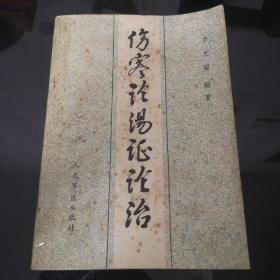 伤寒论汤证论治
李文瑞 编著
人民军医出版社